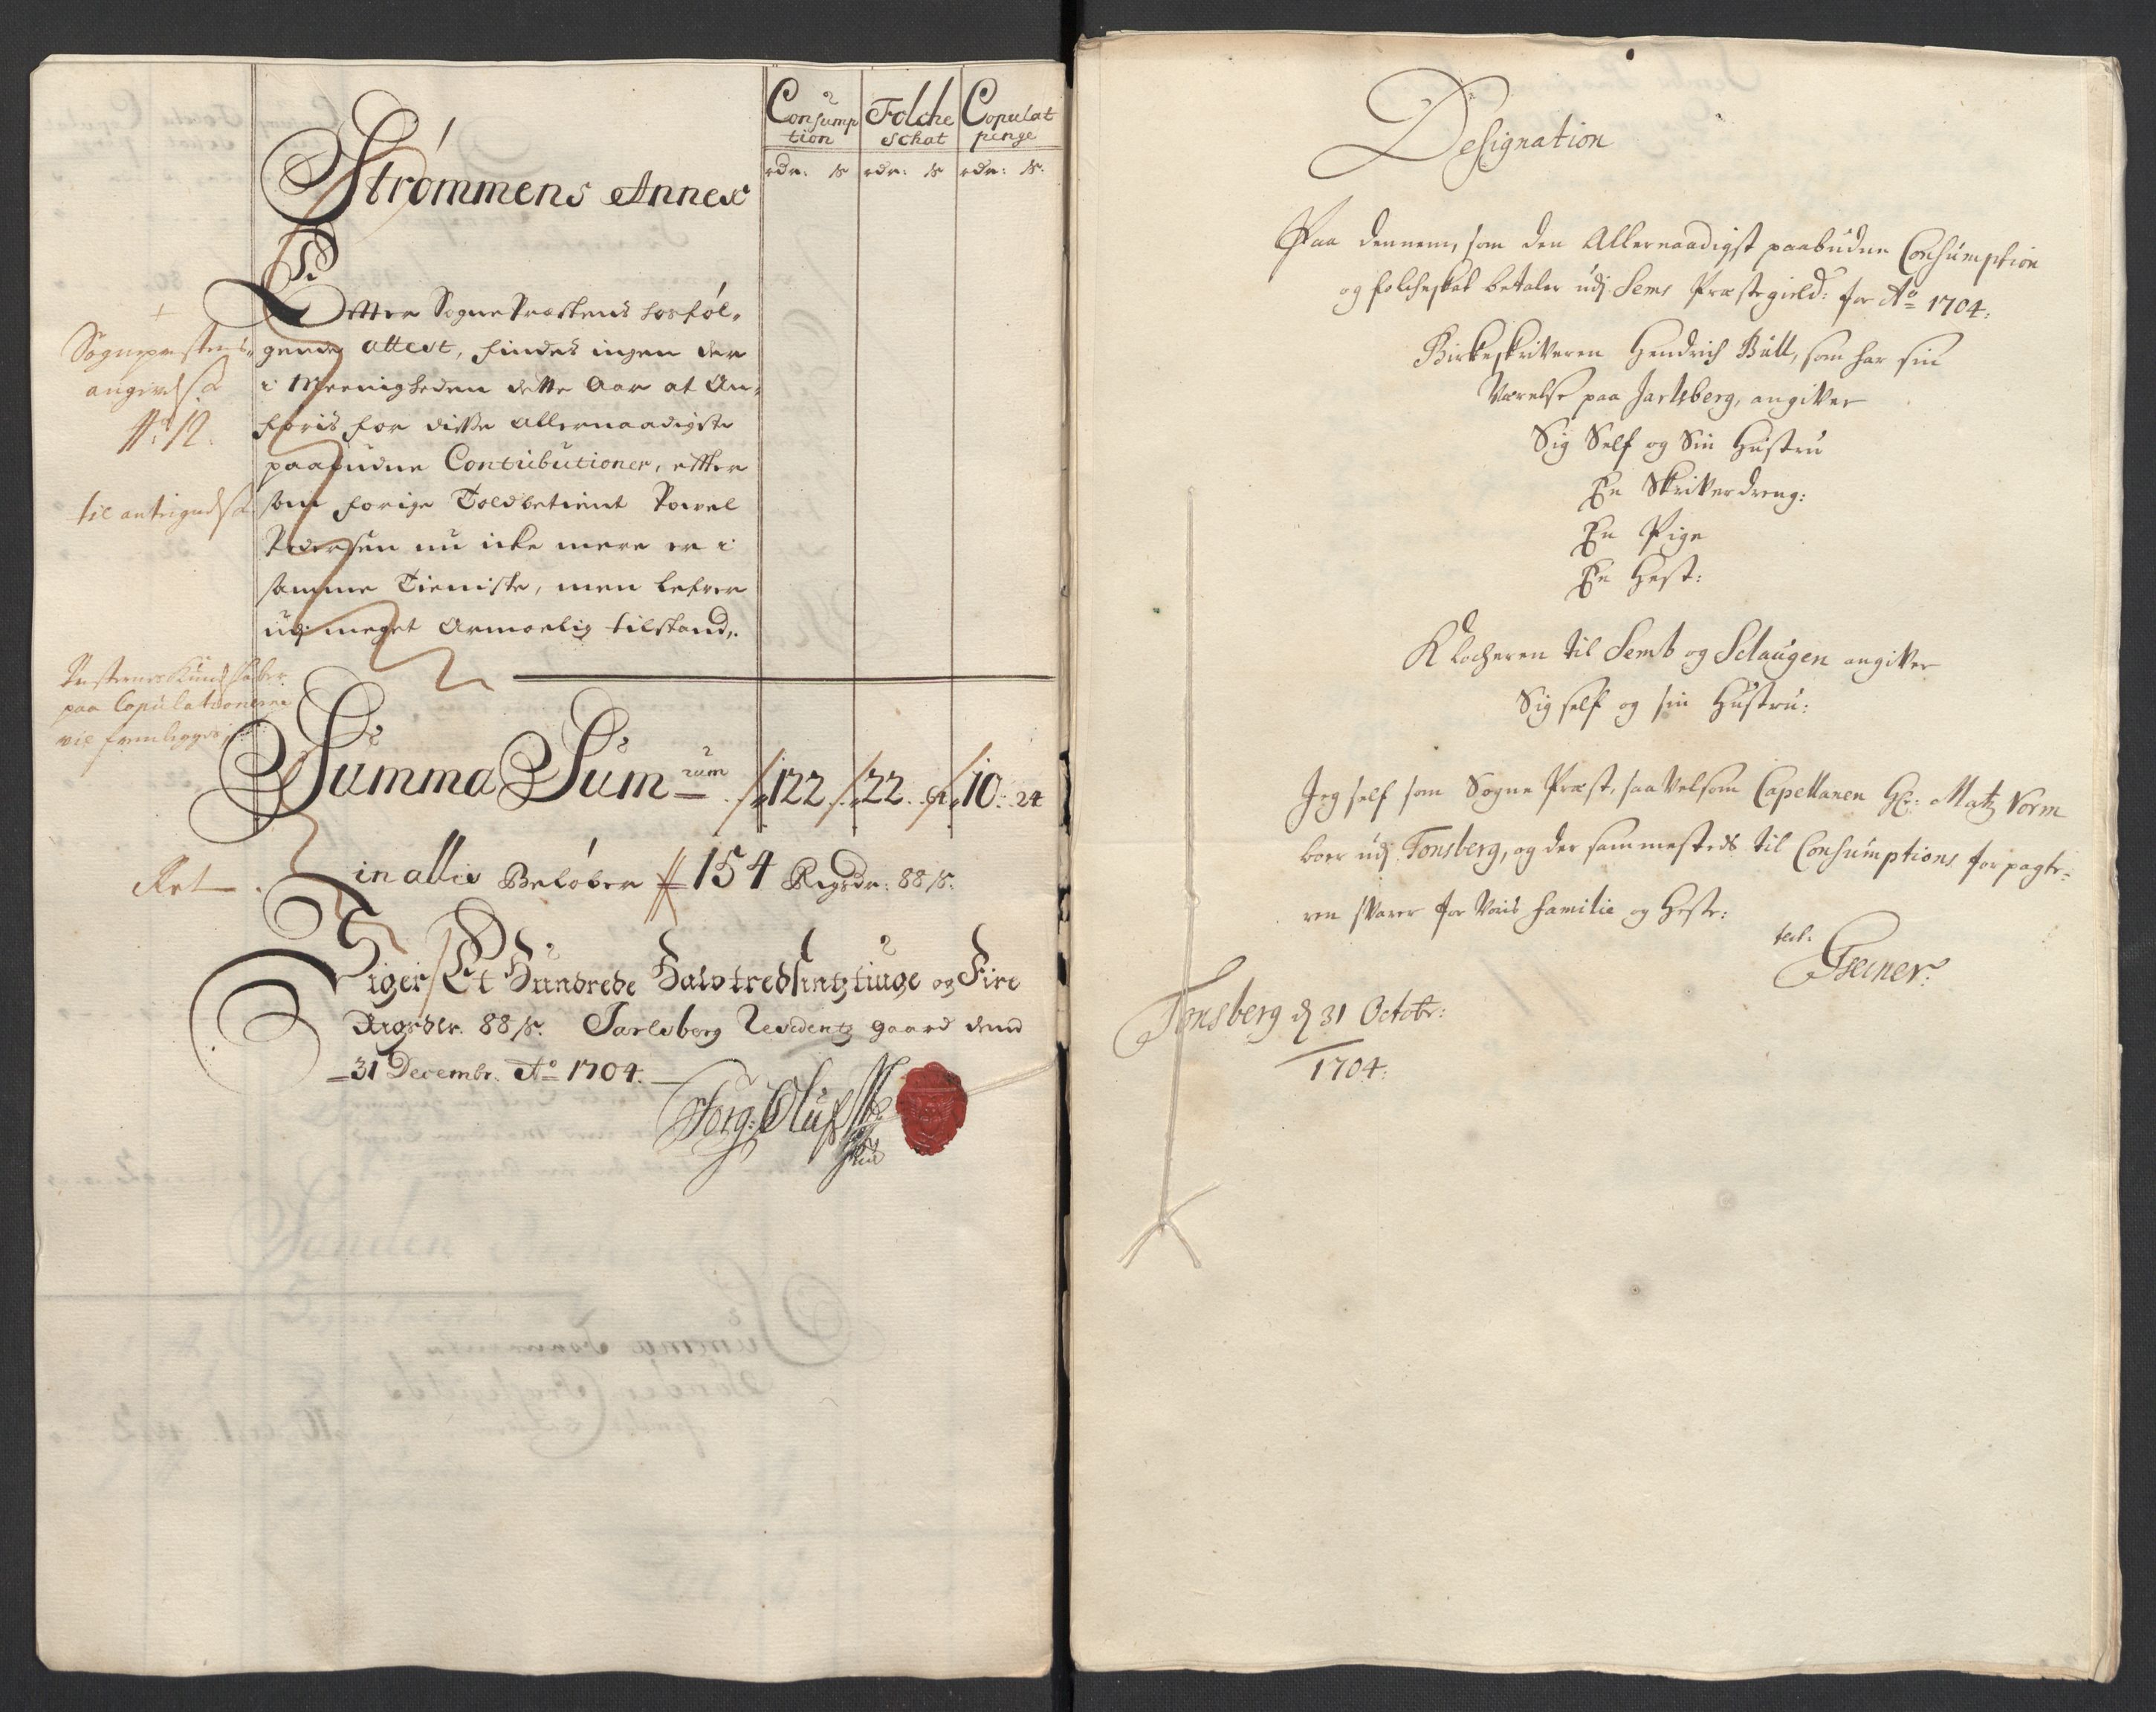 Consumption
Folche schat
Copulat penge
rdr: ß rdr: ß rdr: ß:
Strømmens Annex
Effter Sogne Præstens hosføl-
gende attest, findes ingen der
i Meenigheden dette Aar at An-
føris for disse allernaadigste
paabudne Contributioner, efter
som forige Toldbetient Powel
Pedersen nu icke mere er i
samme Tieniste, men lefver
udj meget Armoelig tilstand,.
Sognepræstens
angivelse
No: 12.
til antegnelse
paa Copulationerne
vil fremlegges
Summa Sum-rum 122 22. 64 10: 24
Ret
in allis Beløber 154 Rigsdr: 88 ß:
Siger Et Hundrede Halvtredsintztiuge og Fire
Rigsdlr. 88 ß: Jarlsberg Residentz gaard dend
31 Decembr. Ao 1704.
Jørg: Oluf
Designation
Paa dennem, som den Allernaadigst paabudne Consumption
og folcheskat betaler udj Sems Præstegield: for Ao 1704:
Birkeskriveren Hendrich Bull, som har sin
Værelse paa Jarlsberg, angiver
Sig Self og Sin Hustru
En Skriverdreng:
En Pige
En Hest:
Klocheren til Semb og Slaugen angiver
Sig self og sin Hustru:
Jeg self som Sogne Præst, saavelsom Capellanen Hr: Matz Vorm
boer udj Tonsberg, og der sammesteds til Consumptions forpagte-
ren svarer for Voris familie og Heste:
Tonsberg d 31 Octobr:
1704: